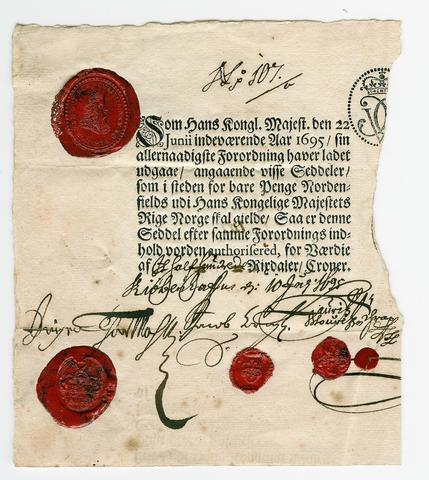 No 107.
Som Hans Kongl. Majest. den 22
Junii indeværende Aar 1695/ sin
allernaadigste Forordning haver ladet
udgaae/ angaaende visse Seddeler/
som i steden for bare Penge Norden-
fields udi Hans Kongelige Majestets
Rige Norge skal gielde/ Saa er denne
Seddel efter samme Forordnings ind-
hold vorden authoriserèd, for Værdie
af Rixdaler/ Croner.
Kiøbenhafn d: 10 1695